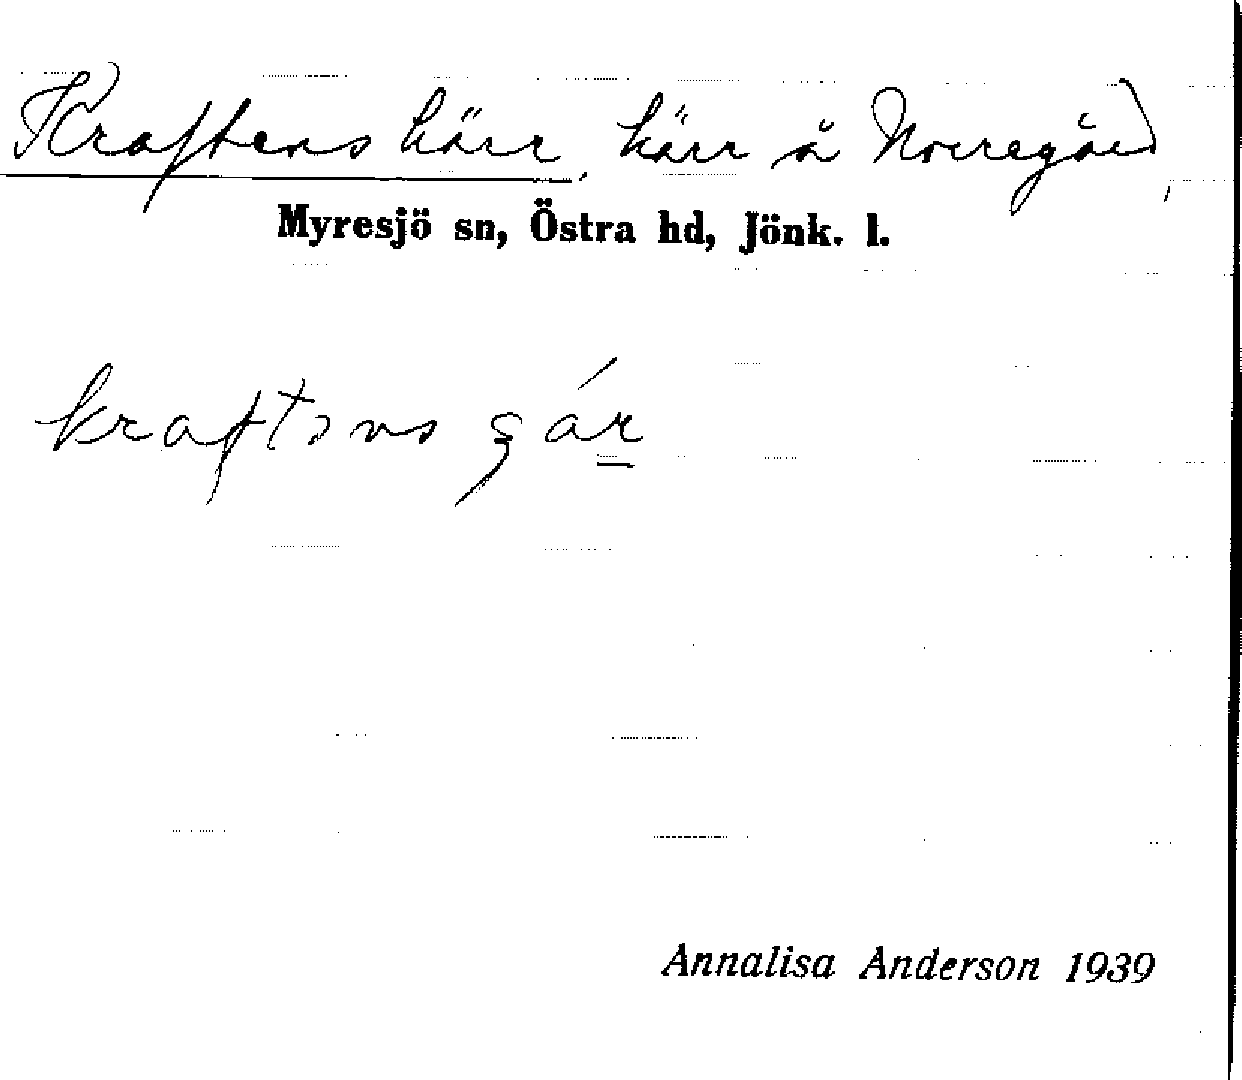 Kraftens kärr, kärr å Norregård,
Myresjö sn, Östra hd, Jönk. l.
kraftəns
Annalisa Anderson 1939